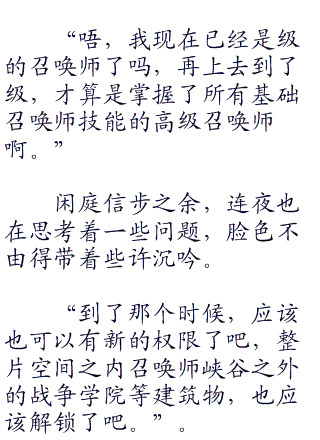 “唔，我现在已经是级
的召唤师了吗，再上去到了
级，才算是掌握了所有基础
召唤师技能的高级召唤师
啊。”
闲庭信步之余，连夜也
在思考着一些问题，脸色不
由得带着些许沉吟。
“到了那个时候，应该
也可以有新的权限了吧，整
片空间之内召唤师峡谷之外
的战争学院等建筑物，也应
该解锁了吧。”。